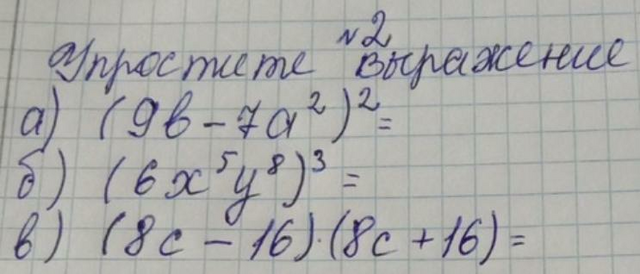 №2
Упростите выражение
а) (9b - 7a²)² =
б) (6x⁵y⁸)³ =
в) (8c - 16)·(8c + 16) =